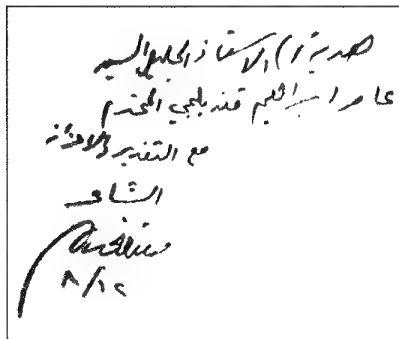 هدية الى الاستاذ الجليل السيد
عامر ابراهيم قنديلجي المحترم
مع التقدير
الشاعر
٨/١٢